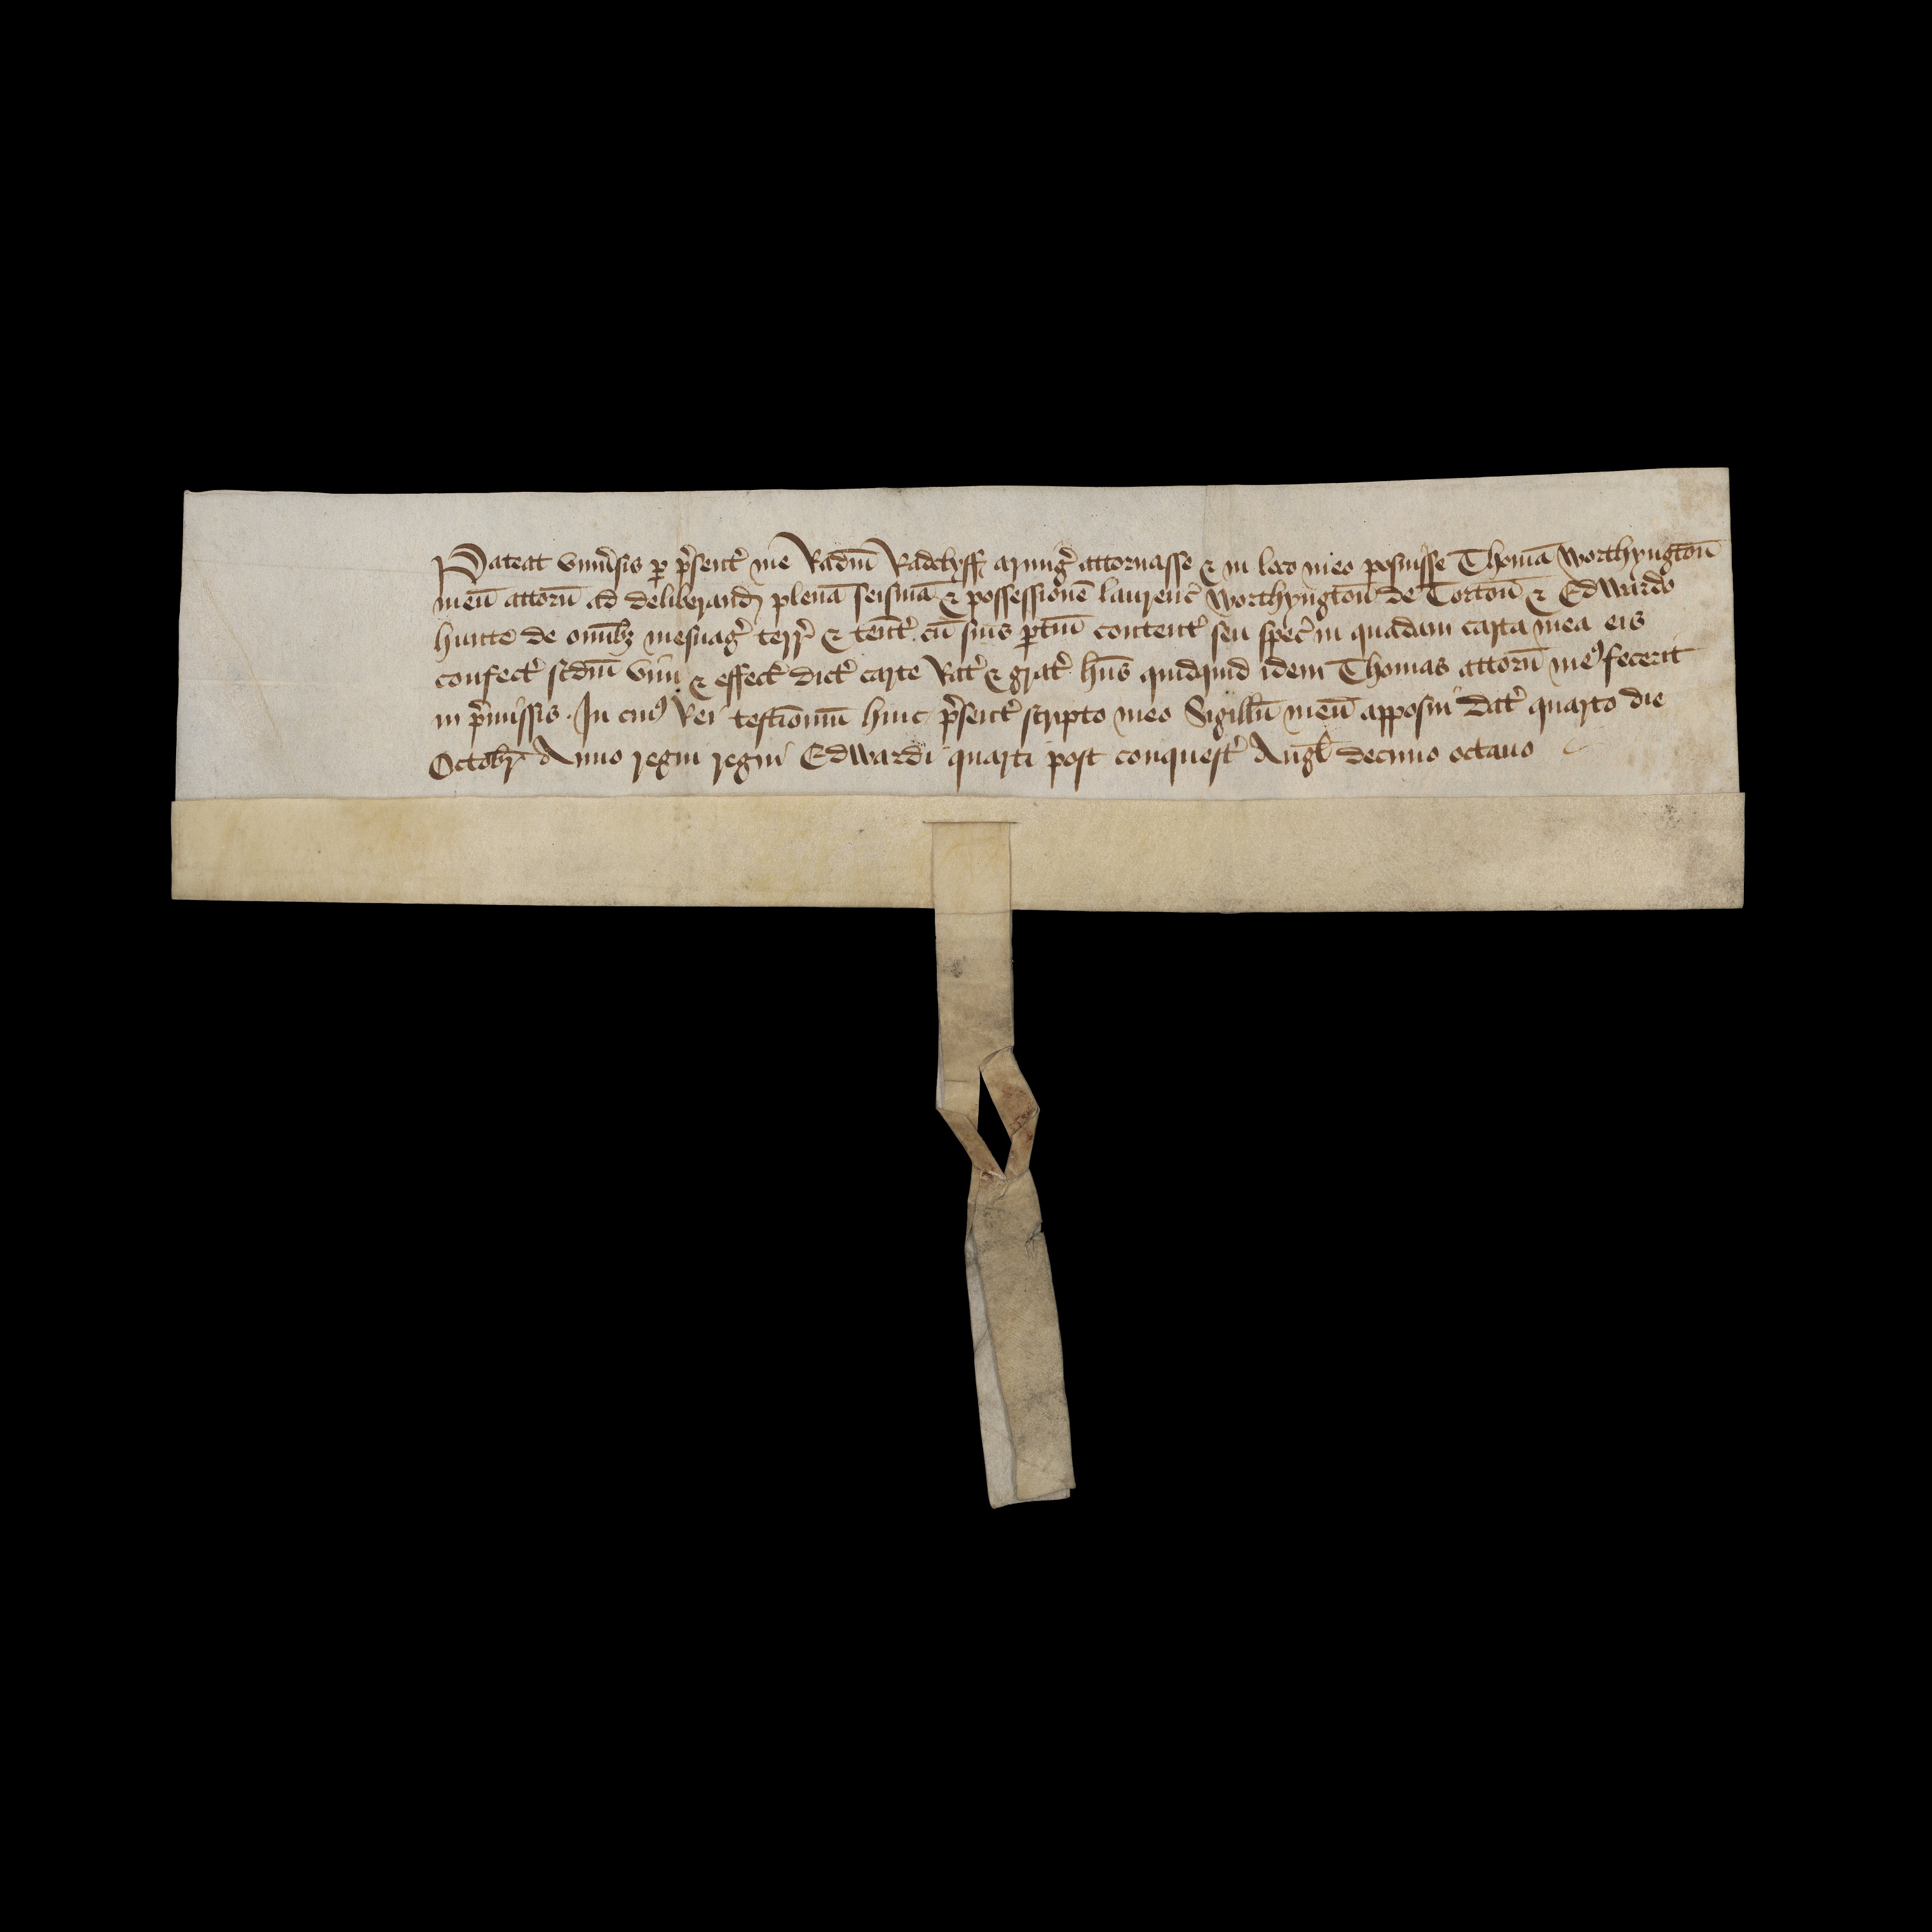 Pateat univ̾sis ꝑ p̾sent̾ me Rad̄m Radclyff arnnig̾ attornasse & in loco meo posuisse Thomā Worthyngton̄
meū attorn̄ ad deliberand plenā seisinā & possessionē laurenc̾ Worthyngton̄ de Torton̄ & Edwardo
hunte de omībȝ mesuag̾ terr̾ & tent̾ cū suis ꝑtin̄ content̾ seu spec̾ in quadam carta mea eis
confect̾ scdm̄ vim & effect̾ dict̾ carte Rat̾ & grat̾ hn̄s quidquid idem Thomas attorn̄ meꝰ fecerit
in p̾missis. In cuiꝰ Rei testimoniū huic p̾sent̾ scripto meo Sigillū meū apposui dat̾ quarto die
Octobr̾ Anno regni regni Edwardi quarti post conquest̾ Angl̾ decimo octavo